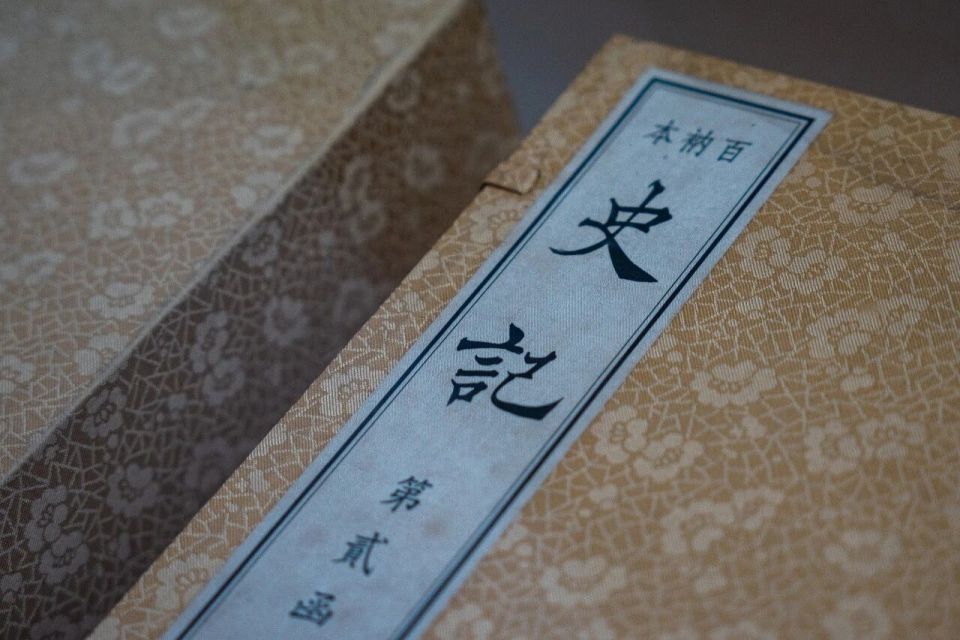 百衲本
史記
第貳函